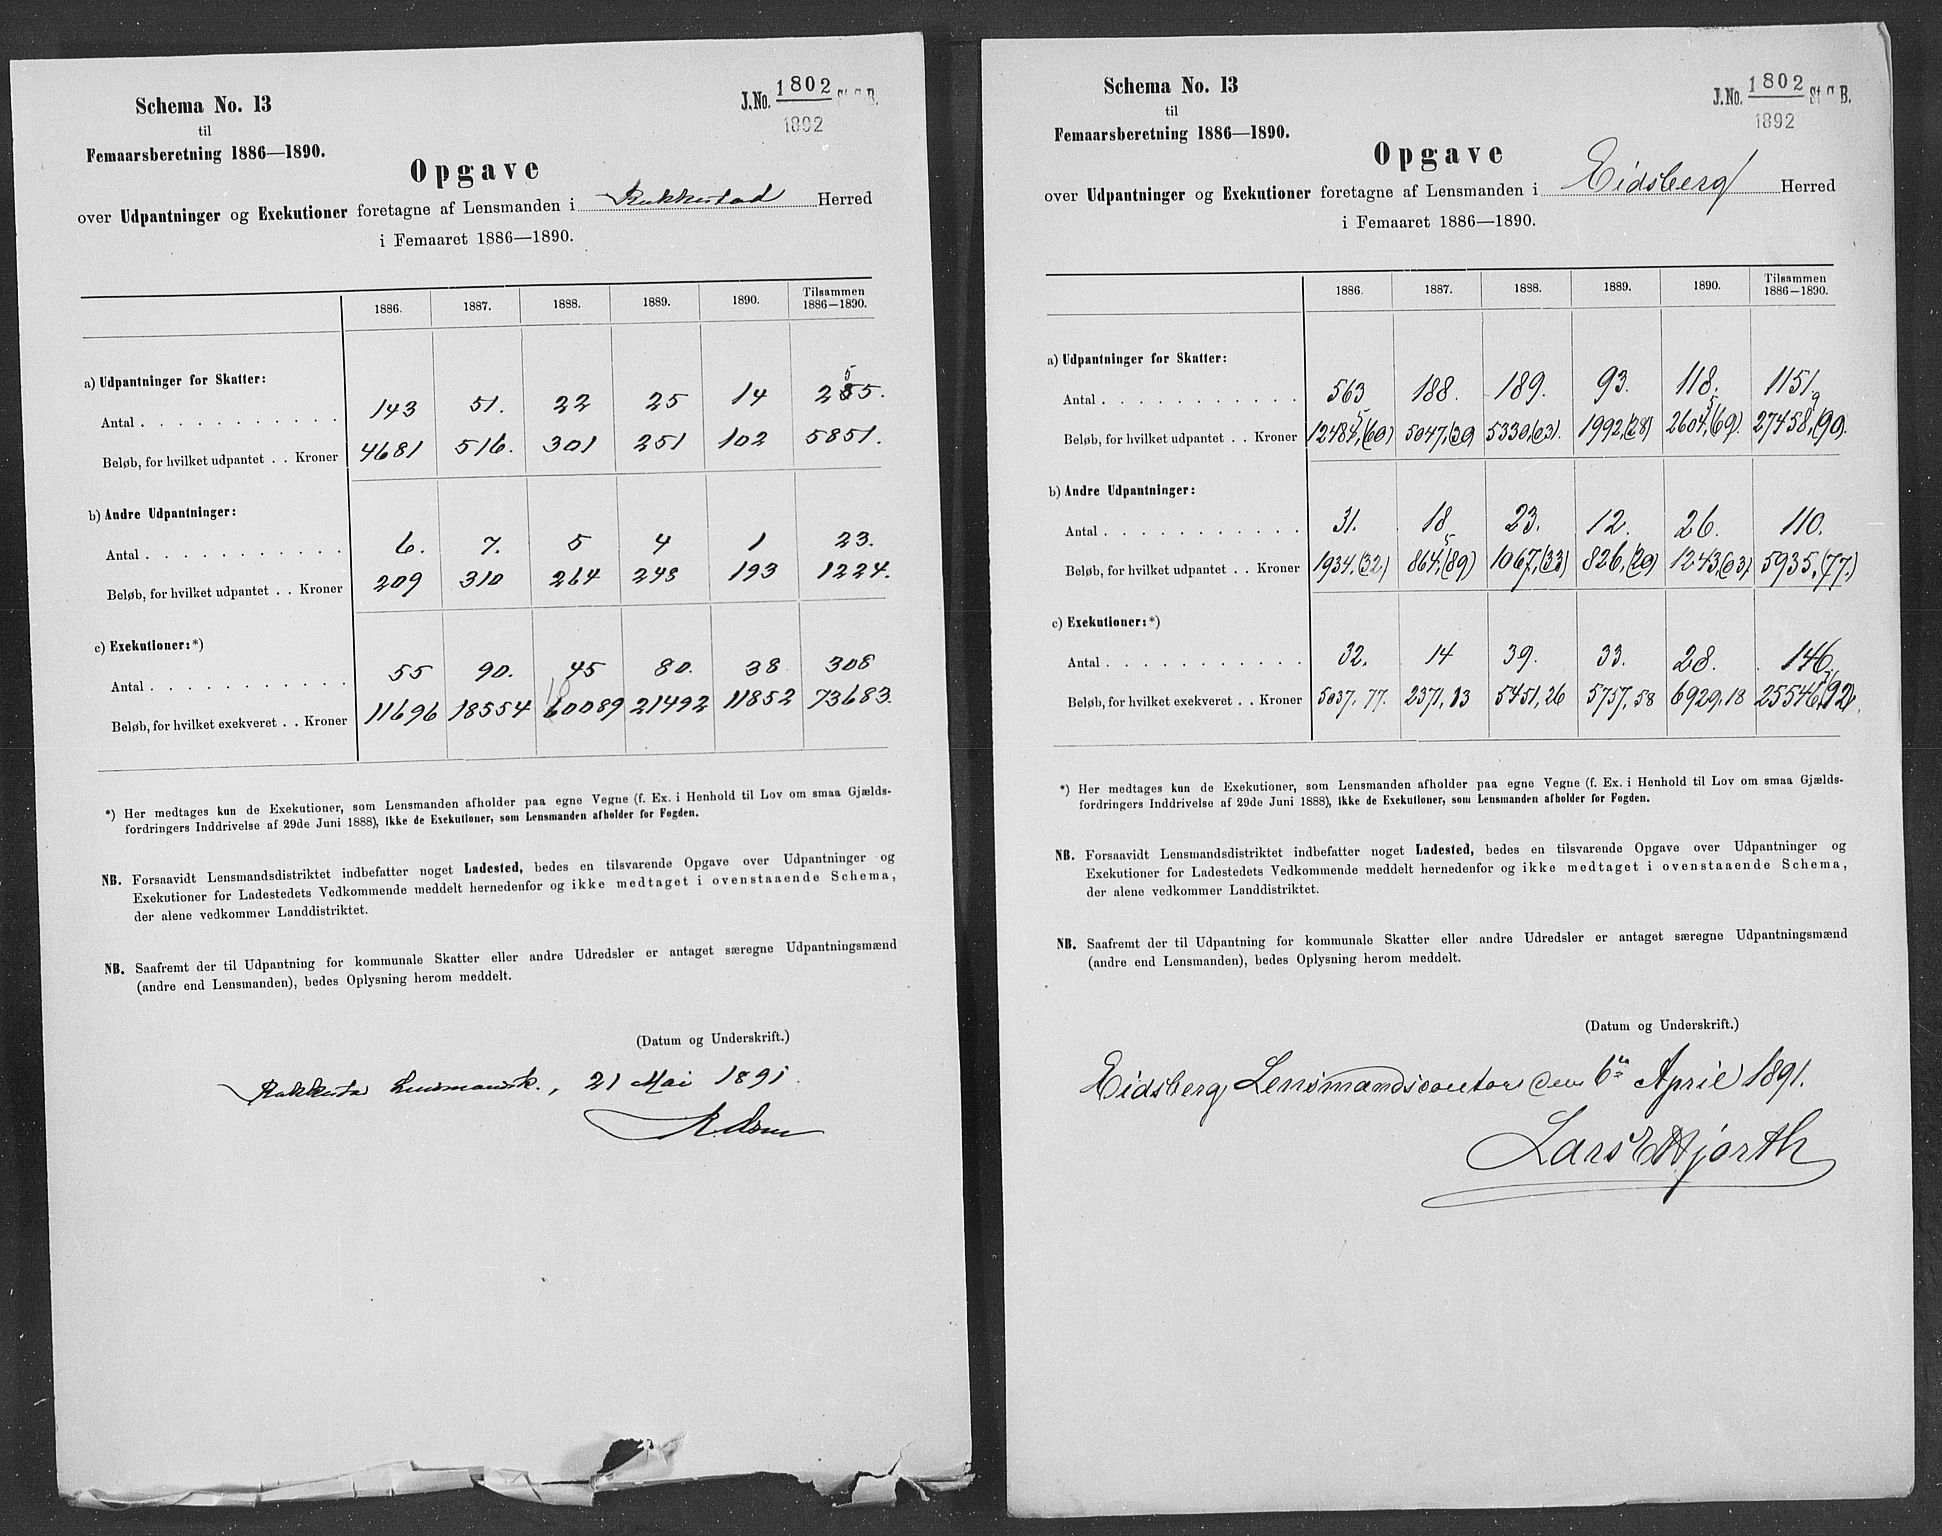 Schema No. 13
til
Femaarsberetning 1886—1890.
J.No. 1802 St. C. B.
1892
Opgave
over Udpantninger og Exekutioner foretagne af Lensmanden i Rakkestad Herred
i Femaaret 1886—1890.
1886. 1887. 1888. 1889. 1890. Tilsammen 1886—1890.
a) Udpantninger for Skatter:
Antal 143 51. 22 25 14 255.
Beløb, for hvilket udpantet . . Kroner 4681 516. 301 251 102 5851.
b) Andre Udpantninger:
Antal 6. 7. 5 4 1 23.
Beløb, for hvilket udpantet . . Kroner 209 310 264 248 193 1224.
c) Exekutioner:*)
Antal 55 90. 45 80. 38 308
Beløb, for hvilket exekveret . . Kroner 11696 18554 10089 21492 11852 73683.
*) Her medtages kun de Exekutioner, som Lensmanden afholder paa egne Vegne (f. Ex. i Henhold til Lov om smaa Gjælds-
fordringers Inddrivelse af 29de Juni 1888), ikke de Exekutioner, som Lensmanden afholder for Fogden.
NB. Forsaavidt Lensmandsdistriktet indbefatter noget Ladested, bedes en tilsvarende Opgave over Udpantninger og
Exekutioner for Ladestedets Vedkommende meddelt hernedenfor og ikke medtaget i ovenstaaende Schema,
der alene vedkommer Landdistriktet.
NB. Saafremt der til Udpantning for kommunale Skatter eller andre Udredsler er antaget særegne Udpantningsmænd
(andre end Lensmanden), bedes Oplysning herom meddelt.
(Datum og Underskrift.)
21 Mai 1891.
Schema No. 13
til
Femaarsberetning 1886—1890.
J.No. 1802 St. C. B.
1892
Opgave
over Udpantninger og Exekutioner foretagne af Lensmanden i Eidsberg Herred
i Femaaret 1886—1890.
1886. 1887. 1888. 1889. 1890. Tilsammen 1886—1890.
a) Udpantninger for Skatter:
Antal 563 188. 189. 93. 118. 1151
Beløb, for hvilket udpantet . . Kroner 12484,(60) 5047,(30) 5330,(03). 1992,(28) 2604,(69). 27458,(90).
b) Andre Udpantninger:
Antal 31. 18 23. 12. 26. 110.
Beløb, for hvilket udpantet . . Kroner 1934.(32.) 864,(89) 1067,(33) 826,(20) 1243,(03) 5935,(77.)
c) Exekutioner:*)
Antal 32. 14 39. 33. 28. 146.
Beløb, for hvilket exekveret . . Kroner 5037,77. 2371,13 5451,26 5757,58 6929,18 25546,92.
*) Her medtages kun de Exekutioner, som Lensmanden afholder paa egne Vegne (f. Ex. i Henhold til Lov om smaa Gjælds-
fordringers Inddrivelse af 29de Juni 1888), ikke de Exekutioner, som Lensmanden afholder for Fogden.
NB. Forsaavidt Lensmandsdistriktet indbefatter noget Ladested, bedes en tilsvarende Opgave over Udpantninger og
Exekutioner for Ladestedets Vedkommende meddelt hernedenfor og ikke medtaget i ovenstaaende Schema,
der alene vedkommer Landdistriktet.
NB. Saafremt der til Udpantning for kommunale Skatter eller andre Udredsler er antaget særegne Udpantningsmænd
(andre end Lensmanden), bedes Oplysning herom meddelt.
(Datum og Underskrift.)
Eidsberg Lensmandscontor den 6te April 1891.
Lars Hjorth